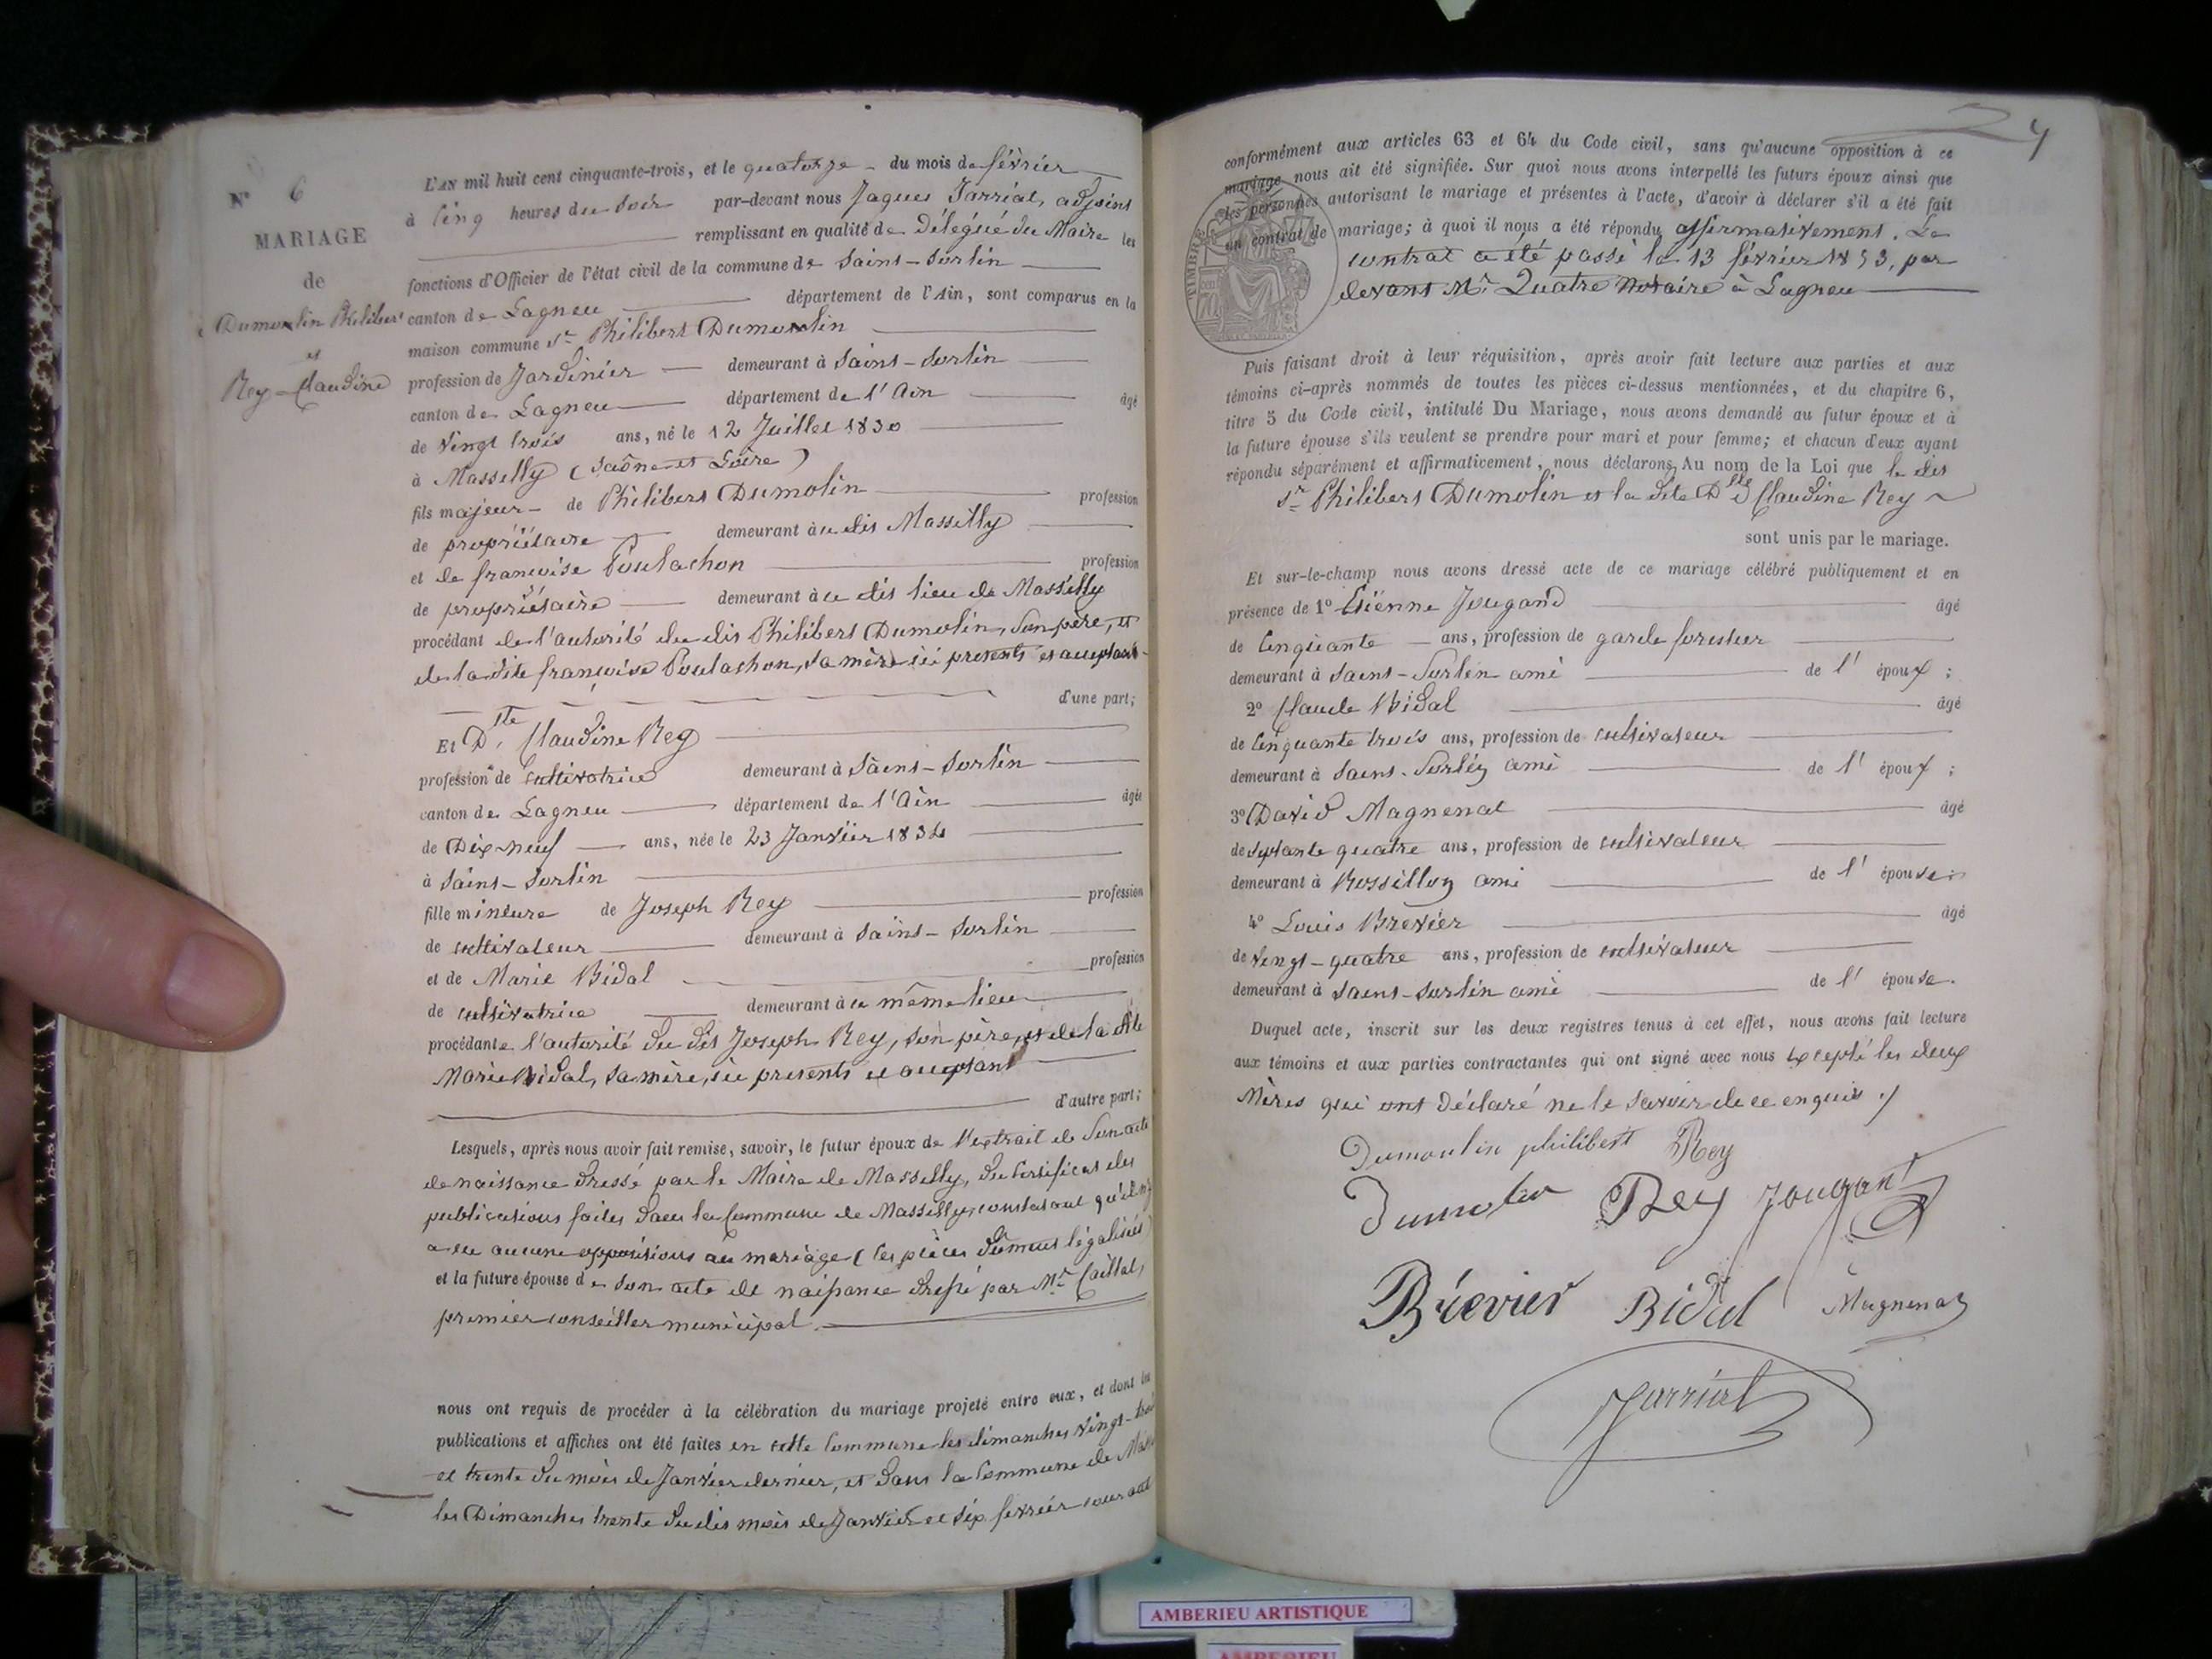 N° 6
MARIAGE
de
Dumoulin Philibert
et
Rey Claudine
L'AN mil huit cent cinquante-trois, et le quatorze du mois de février
à Cinq heures du Soir par-devant nous Jaques Jarriat, adjoint
remplissant en qualité de Délégué du Maire les
fonctions d'Officier de l'état civil de la commune de Saint-Sorlin
canton de Lagneu département de l'Ain, sont comparus en la
maison commune Sr Philibert Dumoulin
profession de Jardinier demeurant à Saint-Sorlin
canton de Lagneu département de l'Ain âgé
de Vingt trois ans, né le 12 Juillet 1830
à Massilly (Saône et Loire)
fils majeur de Philibert Dumolin profession
de propriétaire demeurant au dit Massilly
et de françoise Poulachon profession
de propriétaire demeurant au dit lieu de Massilly
procédant de l'autorité du dit Philibert Dumolin, Son père, et
de la dite françoise Poulachon, sa mère ici présents et acceptant
d'une part;
Et Dlle Claudine Rey
profession de cultivatrice demeurant à Saint-Sorlin
canton de Lagneu département de l'Ain âgée
de Dix neuf ans, née le 23 Janvier 1834
à Saint-Sorlin
fille mineure de Joseph Rey profession
de cultivateur demeurant à Saint-Sorlin
et de Marie Bidal profession
de cultivatrice demeurant au même lieu
procédante l'autorité du dit Joseph Rey, son père, et de la dite
Marie Bidal, sa mère, ici présents et acceptant
d'autre part;
Lesquels, après nous avoir fait remise, savoir, le futur époux de l'extrait de Son acte
de naissance dressé par le Maire de Massilly, du Certificat des
publications faites dans la Commune de Massilly, constatant qu'il n'y
a eu aucune oppositions au mariage (les pièces dûment légalisées)
et la future épouse de son acte de naissance dressé par Mr Caillat,
premier conseiller municipal.
nous ont requis de procéder à la célébration du mariage projeté entre eux, et dont les
publications et affiches ont été faites en cette Commune les dimanches Vingt-trois
et trente du mois de Janvier dernier, et dans la Commune de
les Dimanches trente du dit mois de Janvier et six février courant
4
conformément aux articles 63 et 64 du Code civil, sans qu'aucune opposition à ce
mariage nous ait été signifiée. Sur quoi nous avons interpellé les futurs époux ainsi que
les personnes autorisant le mariage et présentes à l'acte, d'avoir à déclarer s'il a été fait
un contrat de mariage; à quoi il nous a été répondu affirmativement. Le
contrat a été passé le 13 février 1853, par
devant Mr Quatre Notaire à Lagneu
TIMBRE
Puis faisant droit à leur réquisition, après avoir fait lecture aux parties et aux
témoins ci-après nommés de toutes les pièces ci-dessus mentionnées, et du chapitre 6,
titre 5 du Code civil, intitulé Du Mariage, nous avons demandé au futur époux et à
la future épouse s'ils veulent se prendre pour mari et pour femme; et chacun d'eux ayant
répondu séparément et affirmativement, nous déclarons, Au nom de la Loi que le dit
Sr Philibert Dumolin et la dite Dlle Claudine Rey
sont unis par le mariage.
Et sur-le-champ nous avons dressé acte de ce mariage célébré publiquement et en
présence de 1° Etienne Jougand âgé
de Cinquante ans, profession de garde forestier
demeurant à Saint-Sorlin ami de l'époux;
2° Claude Bidal âgé
de Cinquante trois ans, profession de cultivateur
demeurant à Saint-Sorlin ami de l'époux;
3° David Magnenat âgé
de Septante quatre ans, profession de cultivateur
demeurant à Rossillon ami de l'épouse;
4° Louis Brevier âgé
de Vingt-quatre ans, profession de cultivateur
demeurant à Saint-Sorlin ami de l'épouse.
Duquel acte, inscrit sur les deux registres tenus à cet effet, nous avons fait lecture
aux témoins et aux parties contractantes qui ont signé avec nous excepté les deux
Mères qui ont déclaré ne le savoir de ce enquis ./
Dumoulin philibert Rey
Dumolin Rey Jougant
Brevier Bidal Magnenat
Jarriat
AMBERIEU ARTISTIQUE
AMBERIEU